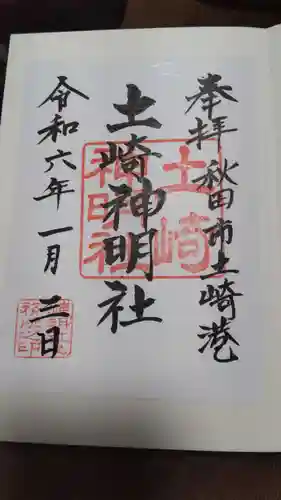 奉拝 秋田市土崎港
土崎神明社
令和六年一月三日
土崎
神明社